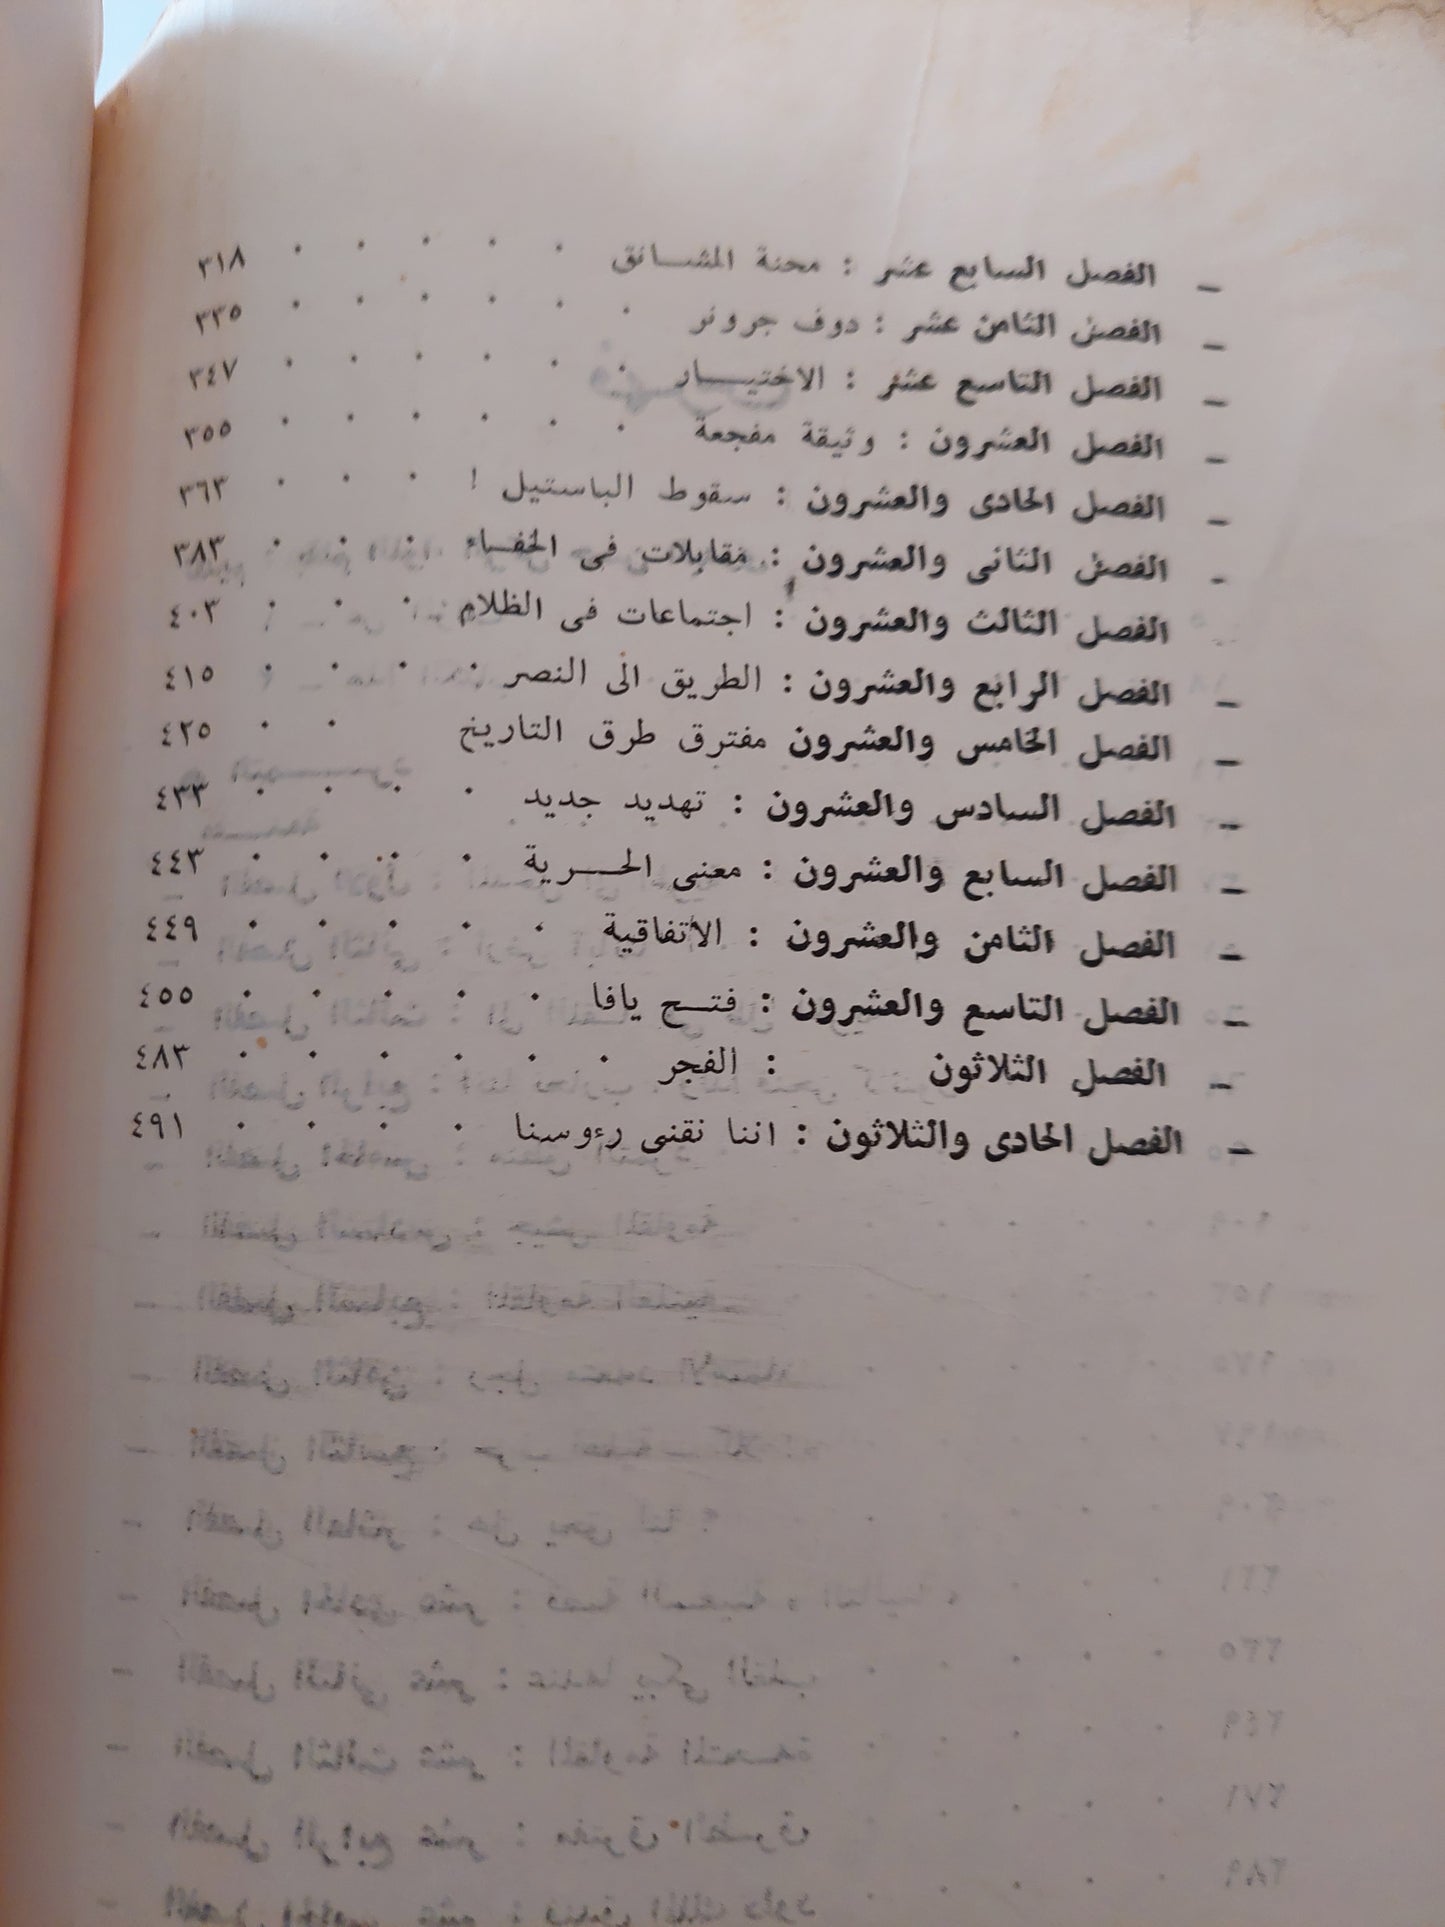 – الفصل السابع عشر : محنة المشانق . . . . . ٣١٨
– الفصل الثامن عشر : دوف جرونر . . . . . . ٣٣٥
– الفصل التاسع عشر : الاختيار . . . . . . ٣٤٧
– الفصل العشرون : وثيقة مفجعة . . . . . . ٣٥٥
– الفصل الحادى والعشرون : سقوط الباستيل ! . . . ٣٦٣
– الفصل الثانى والعشرون : مقابلات فى الخفاء . . . ٣٨٣
– الفصل الثالث والعشرون : اجتماعات فى الظلام . . . ٤٠٣
– الفصل الرابع والعشرون : الطريق الى النصر . . . . ٤١٥
– الفصل الخامس والعشرون مفترق طرق التاريخ . . ٤٢٥
– الفصل السادس والعشرون : تهديد جديد . . . . ٤٣٣
– الفصل السابع والعشرون : معنى الحرية . . . . ٤٤٣
– الفصل الثامن والعشرون : الاتفاقية . . . . . ٤٤٩
– الفصل التاسع والعشرون : فتح يافا . . . . . ٤٥٥
– الفصل الثلاثون : الفجر . . . . . . ٤٨٣
– الفصل الحادى والثلاثون : اننا نقنى رءوسنا . . . . ٤٩١